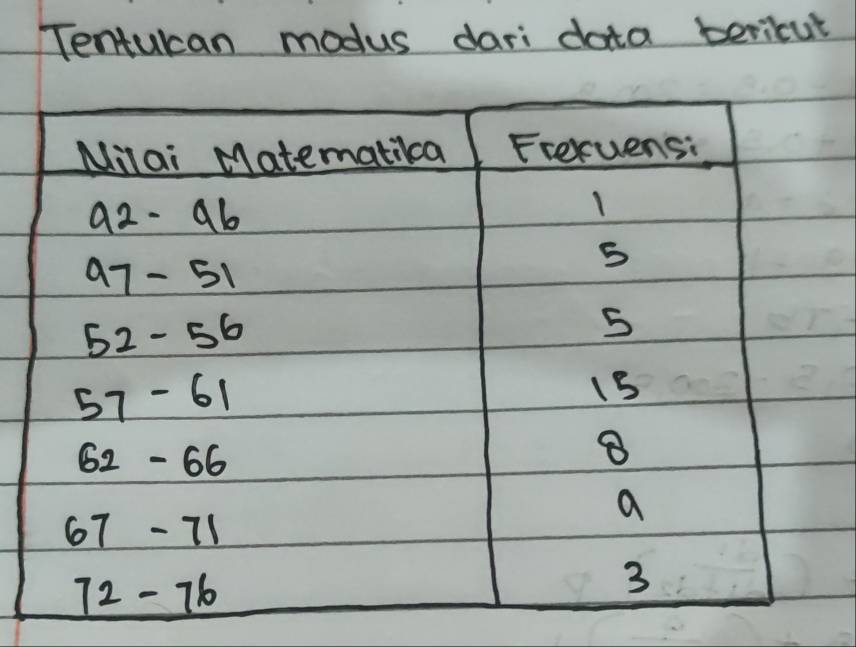 Tentukan modus dari data berikut
Nilai Matematika Frekuensi
42 - 46 1
47 - 51 5
52 - 56 5
57 - 61 15
62 - 66 8
67 - 71 4
72 - 76 3